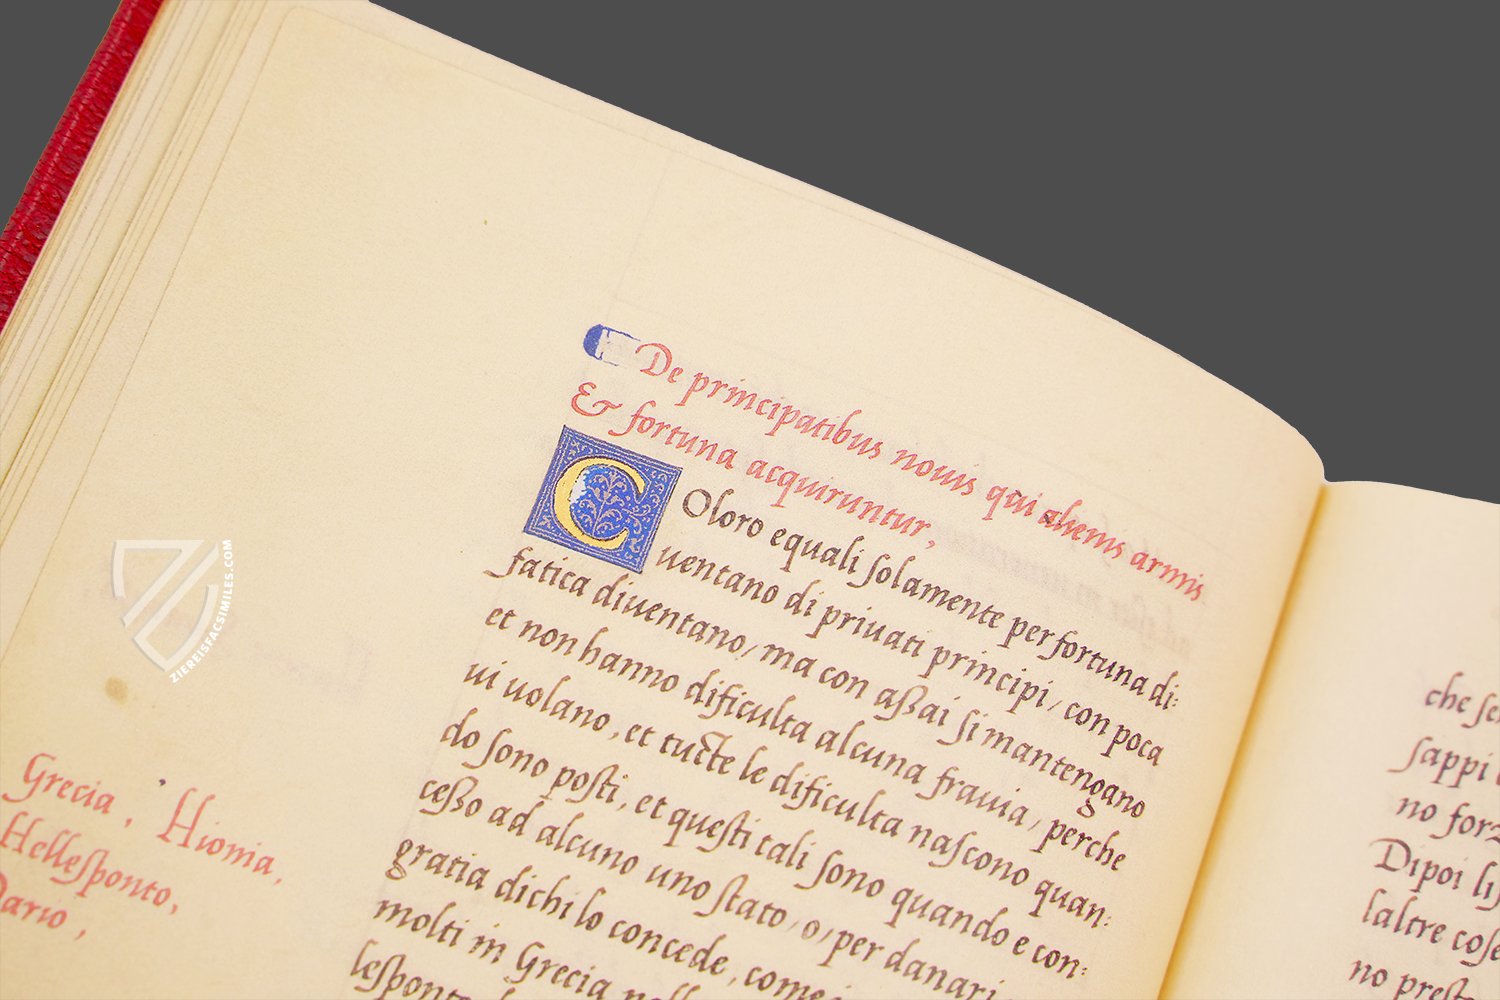 De principatibus nouis qui alienis armis
& fortuna acquiruntur,
COloro equali ſolamente per fortuna di:
uentano di priuati principi, con poca
fatica diuentano, ma con aßai ſi mantengano
et non hanno dificulta alcuna frauia, perche
ui uolano, et tucte le dificulta naſcono quan:
do ſono poſti, et queſti tali ſono quando e con:
ceßo ad alcuno uno ſtato, o, per danari
gratia dichi lo concede, come
molti in Grecia
leſponto
Grecia, Hionia,
Helleſponto,
Dario,
che
ſappi
no
Dipoi
laltre coſe
no
ZIEREISFACSIMILES.COM